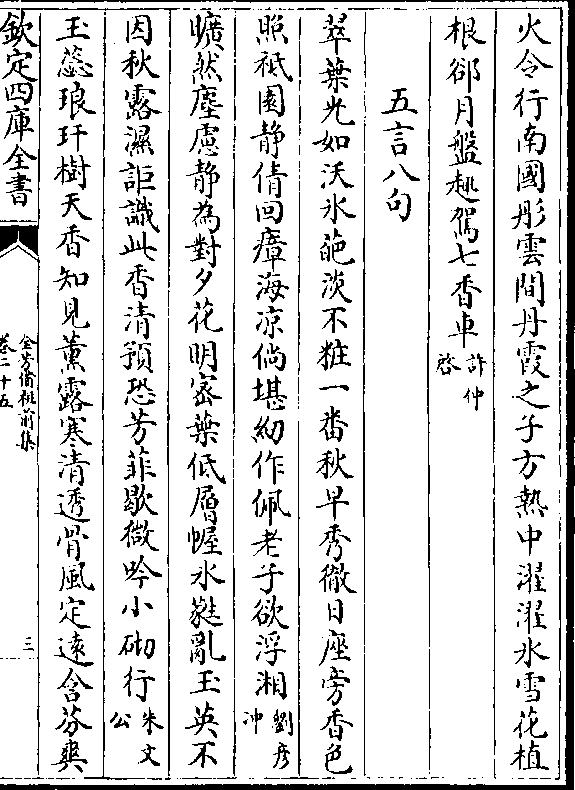 火令行南國彤雲間丹霞之子方熱中濯濯氷雪花植
根卻月盤趂駕七香車許仲啓
五言八句
翠葉光如沃氷葩淡不粧一番秋早秀徹日座旁香色
照祗園静倩回瘴海凉倘堪紉作佩老子欲浮湘劉彦冲
曠然塵慮静為對夕花明宻葉低層幄氷蕤亂玉英不
因秋露濕詎識此香清預恐芳菲歇微吟小砌行朱文公
玉蕊琅玕樹天香知見薰露寒清透骨風定遠含芬爽
欽定四庫全書
全芳備祖前集
卷二十五
三